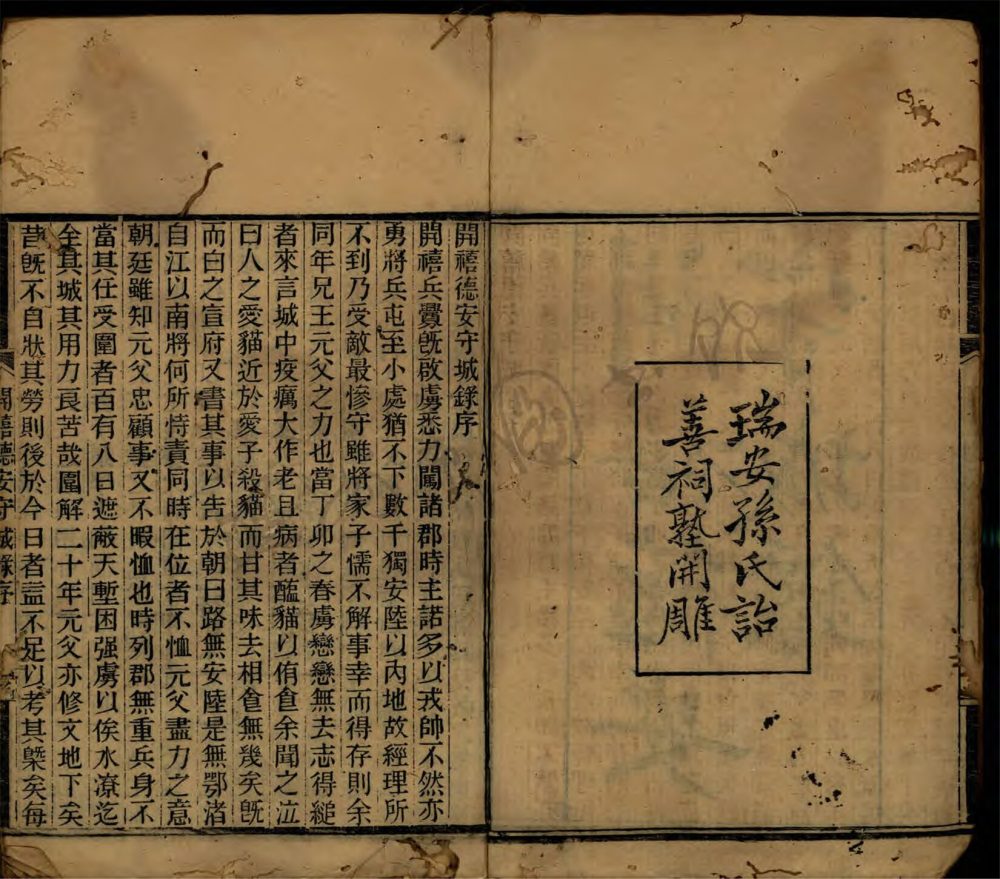 瑞安孫氏詒
善祠塾開雕
開禧德安守城錄序
開禧兵釁旣啟虜悉力闖諸郡時主諾多以戎帥不然亦
勇將兵屯至小處猶不下數千獨安陸以內地故經理所
不到乃受敵最慘守雖將家子懦不解事幸而得存則余
同年兄王元父之力也當丁卯之春虜戀戀無去志得縋
者來言城中疫癘大作老且病者醢貓以侑食余聞之泣
曰人之愛貓近於愛子殺貓而甘其味去相食無幾矣旣
而白之宣府又書其事以告於朝曰路無安陸是無鄂渚
自江以南將何所恃責同時在位者不恤元父盡力之意
朝廷雖知元父忠顧事又不暇恤也時列郡無重兵身不
當其任受圍者百有八日遮蔽天塹困强虜以俟水潦迄
全其城其用力良苦哉圍解二十年元父亦修文地下矣
昔旣不自狀其勞則後於今日者葢不足以考其槩矣每
開禧德安守城錄序